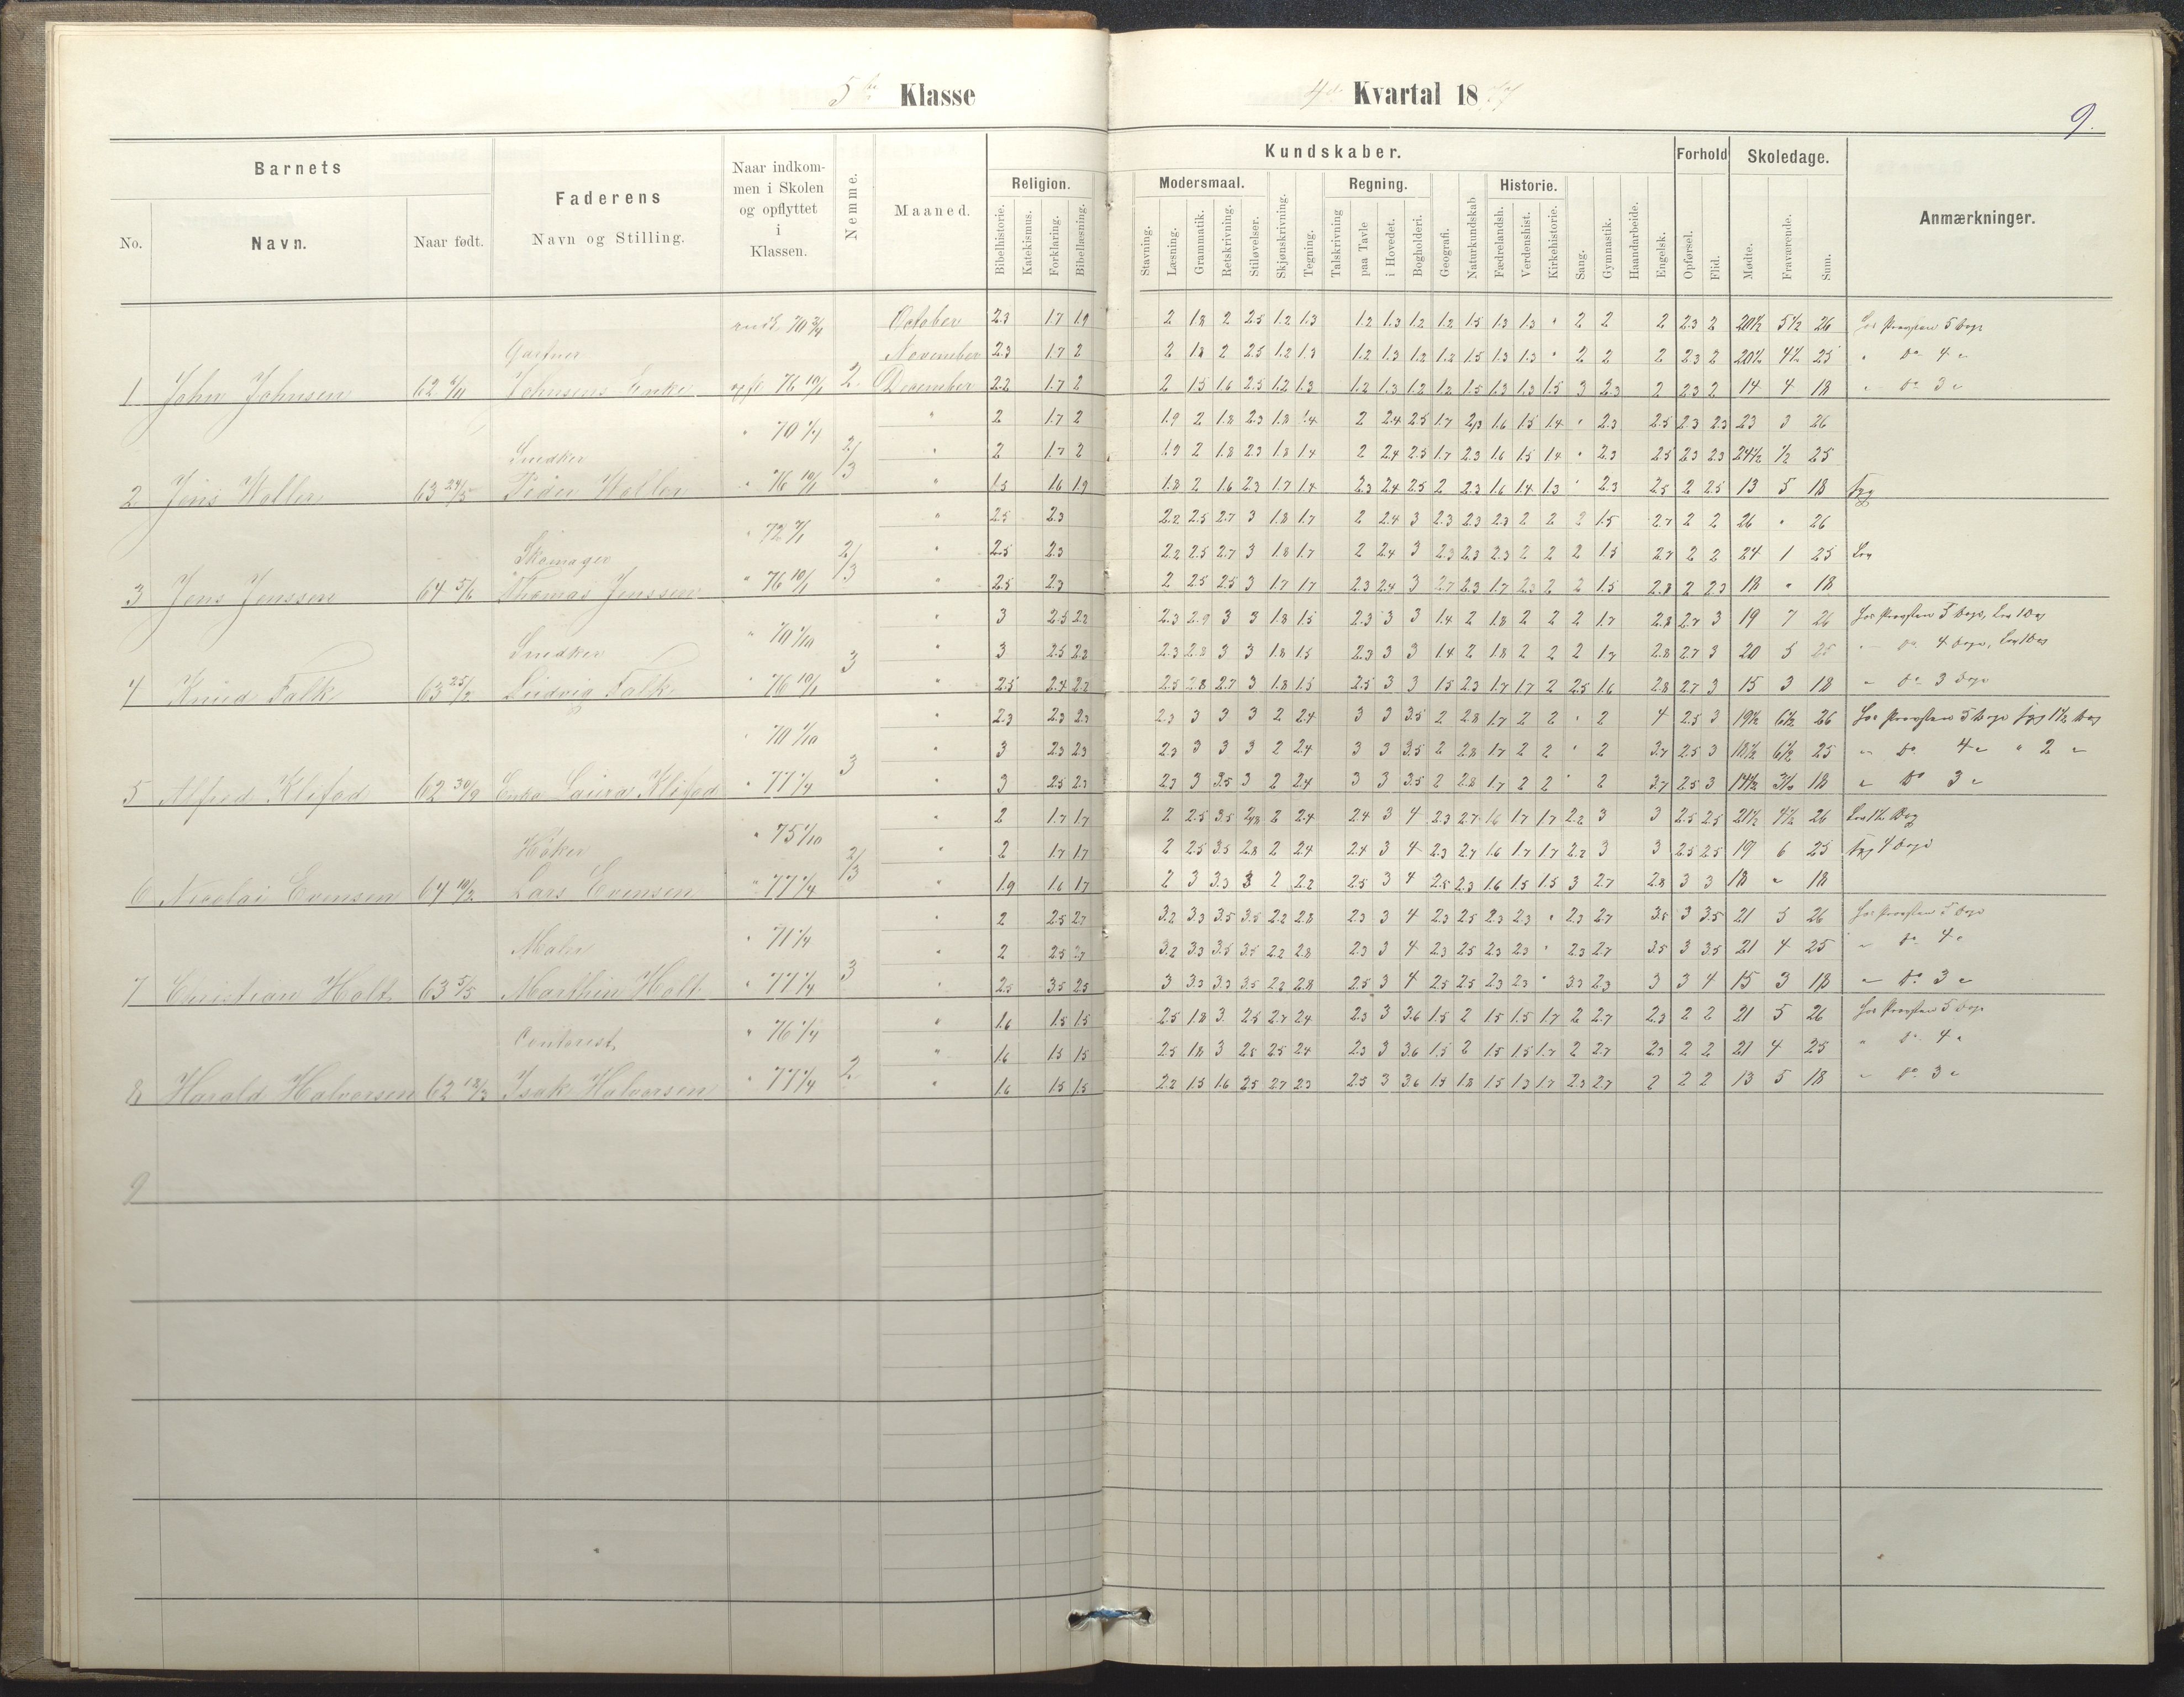 5te Klasse
4de Kvartal 1877
9.
Barnets
No. Navn. Naar født.
Faderens
Navn og Stilling.
Naar indkom-
men i Skolen
og opflyttet
i
Klassen.
Nemme.
Maaned.
Kundskaber.
Religion.
Bibelhistorie. Katekismus. Forklaring. Bibellæsning.
Modersmaal.
Stavning. Læsning. Grammatik. Retskrivning. Stiløvelser. Skjønskrivning. Tegning.
Regning.
Talskrivning paa Tavle i Hovedet. Bogholderi.
Geografi. Naturkundskab
Historie.
Fædrelandsh. Verdenshist. Kirkehistorie.
Sang. Gymnastik. Haandarbeide. Engelsk.
Forhold
Opførsel. Flid.
Skoledage.
Mødte. Fraværende. Sum.
Anmærkninger.
October 2.3 1.7 1.9 2 1.8 2 2.5 1.2 1.3 1.2 1.3 1.2 1.2 1.5 1.3 1.3 " 2 2 2 2.3 2 20½ 5½ 26
Gartner November 2.3 1.7 2 2 1.8 2 2.5 1.2 1.3 1.2 1.3 1.2 1.2 1.5 1.3 1.3 " 2 2 2 2.3 2 20½ 4½ 25 " do 4 "
1 John Johnsen Johnsens Enke 76 10/1 2 December 2.2 1.7 2 2 1.5 1.6 2.5 1.2 1.3 1.2 1.3 1.2 1.2 1.5 1.3 1.3 1.5 3 2.3 2 2.3 2 14 4 18 " do 3 "
" 2 1.7 2 1.9 2 1.8 2.3 1.8 1.4 2 2.4 2.5 1.7 2.3 1.6 1.5 1.4 " 2.3 2.5 2.3 2.3 23 3 26
Snedker 2/3 " 2 1.7 2 1.9 2 1.8 2.3 1.8 1.4 2 2.4 2.5 1.7 2.3 1.6 1.5 1.4 " 2.3 2.5 2.3 2.3 24½ ½ 25
2 Jens 63 24/5 Peder " 76 10/1 " 1.5 1.6 1.9 1.8 2 1.6 2.3 1.7 1.4 2.3 2.4 2.5 2 2.3 1.6 1.4 1.3 " 2.3 2.5 2 2.5 13 5 18 Syg
" 2.5 2.3 2.2 2.5 2.7 3 1.8 1.7 2 2.4 3 2.3 2.3 2.3 2 2 2 1.5 2.7 2 2 26 " 26
Skomager 2/3 " 2.5 2.3 2.2 2.5 2.7 3 1.8 1.7 2 2.4 3 2.3 2.3 2.3 2 2 2 1.5 2.7 2 2 24 1 25 Lov
3 Jens Jenssen 64 5/6 Thomas Jenssen " 76 10/1 " 2.5 2.3 2 2.5 2.5 3 1.7 1.7 2.3 2.4 3 2.7 2.3 1.7 2.3 2 2 1.5 2.8 2 2.3 18 " 18
" 70 1/10 " 3 2.5 2.2 2.3 2.9 3 3 1.8 1.5 2.3 3 3 1.4 2 1.8 2 2 2 1.7 2.8 2.7 3 19 7 26
Snedker 3 " 3 2.5 2.2 2.3 2.8 3 3 1.8 1.5 2.3 3 3 1.4 2 1.8 2 2 2 1.7 2.8 2.7 3 20 5 25
4 Knud Falk 63 25/2 Ludvig Falk " 76 10/1 " 2.5 2.4 2.2 2.5 2.8 2.7 3 1.8 1.5 2.5 3 3 1.5 2.3 1.7 1.7 2 2.5 1.6 2.8 2.7 3 15 3 18 " do 3 Dage
" 70 1/10 " 2.3 2.3 2.3 2.3 3 3 3 2 2.4 3 3 3.5 2 2.8 1.7 2 2 " 2 4 2.5 3 19½ 6½ 26
3 " 3 2.3 2.3 2.3 3 3 3 2 2.4 3 3 3.5 2 2.8 1.7 2 2 " 2 3.7 2.5 3 18½ 6½ 25 " do 4 " " 2 "
5 Alfred Klefod 62 30/9 Enke Laura Klefod " 77 1/4 " 3 2.5 2.3 2.3 3 3.5 3 2 2.4 3 3 3.5 2 2.8 1.7 2 2 " 2 3.7 2.5 3 14½ 3½ 18 " do 3 "
" 75 1/10 " 2 1.7 1.7 2 2.5 3.5 2.8 2 2.4 2.4 3 4 2.3 2.7 1.6 1.7 1.7 2.2 3 3 2.5 2.5 21½ 4½ 26
Høker 2/3 " 2 1.7 1.7 2 2.5 3.5 2.8 2 2.4 2.4 3 4 2.3 2.7 1.6 1.7 1.7 2.2 3 3 2.5 2.5 19 6 25 Syg 4 Dage
6 Nicolai Evensen 64 Lars Evensen " 77 1/4 " 1.9 1.6 1.7 2 3 3.3 3 2 2.2 2.5 3 4 2.5 2.3 1.6 1.5 1.5 3 2.7 2.8 3 3 18 " 18
" 71 1/4 " 2 2.5 2.7 3.2 3.3 3.5 3.5 2.2 2.8 2.3 3 4 2.3 2.5 2.3 2.3 " 2.3 2.7 3.5 3 3.5 21 5 26
Maler 3 " 2 2.5 2.7 3.2 3.3 3.5 3.5 2.2 2.8 2.3 3 4 2.3 2.5 2.3 2.3 " 2.3 2.7 3.5 3 3.5 21 4 25 " do 4 "
7 Christian Holt 63 5/5 Marthin Holt " 77 1/4 " 2.5 3.5 2.5 3 3.3 3.3 3.5 2.2 2.8 2.5 3 4 2.5 2.5 2.3 2.3 " 3.3 2.3 3 3 4 15 3 18 " do 3 "
" 76 1/4 " 1.6 1.5 1.5 2.5 1.8 3 2.5 2.7 2.4 2.3 3 3.6 1.5 2 1.5 1.5 1.7 2 2.7 2.3 2 2 21 5 26
Contorist 2 " 1.6 1.5 1.5 2.5 1.8 3 2.5 2.5 2.4 2.3 3 3.6 1.5 2 1.5 1.5 1.7 2 2.7 2.3 2 2 21 4 25 " do 4 "
8 Harald Halvorsen 62 18/3 Isak Halvorsen " 77 1/4 " 1.6 1.5 1.5 2.2 1.5 1.6 2.5 2.7 2.3 2.5 3 3.6 1.5 1.8 1.5 1.3 1.7 2.3 2.7 2 2 2 13 5 18 " do 3 "
9